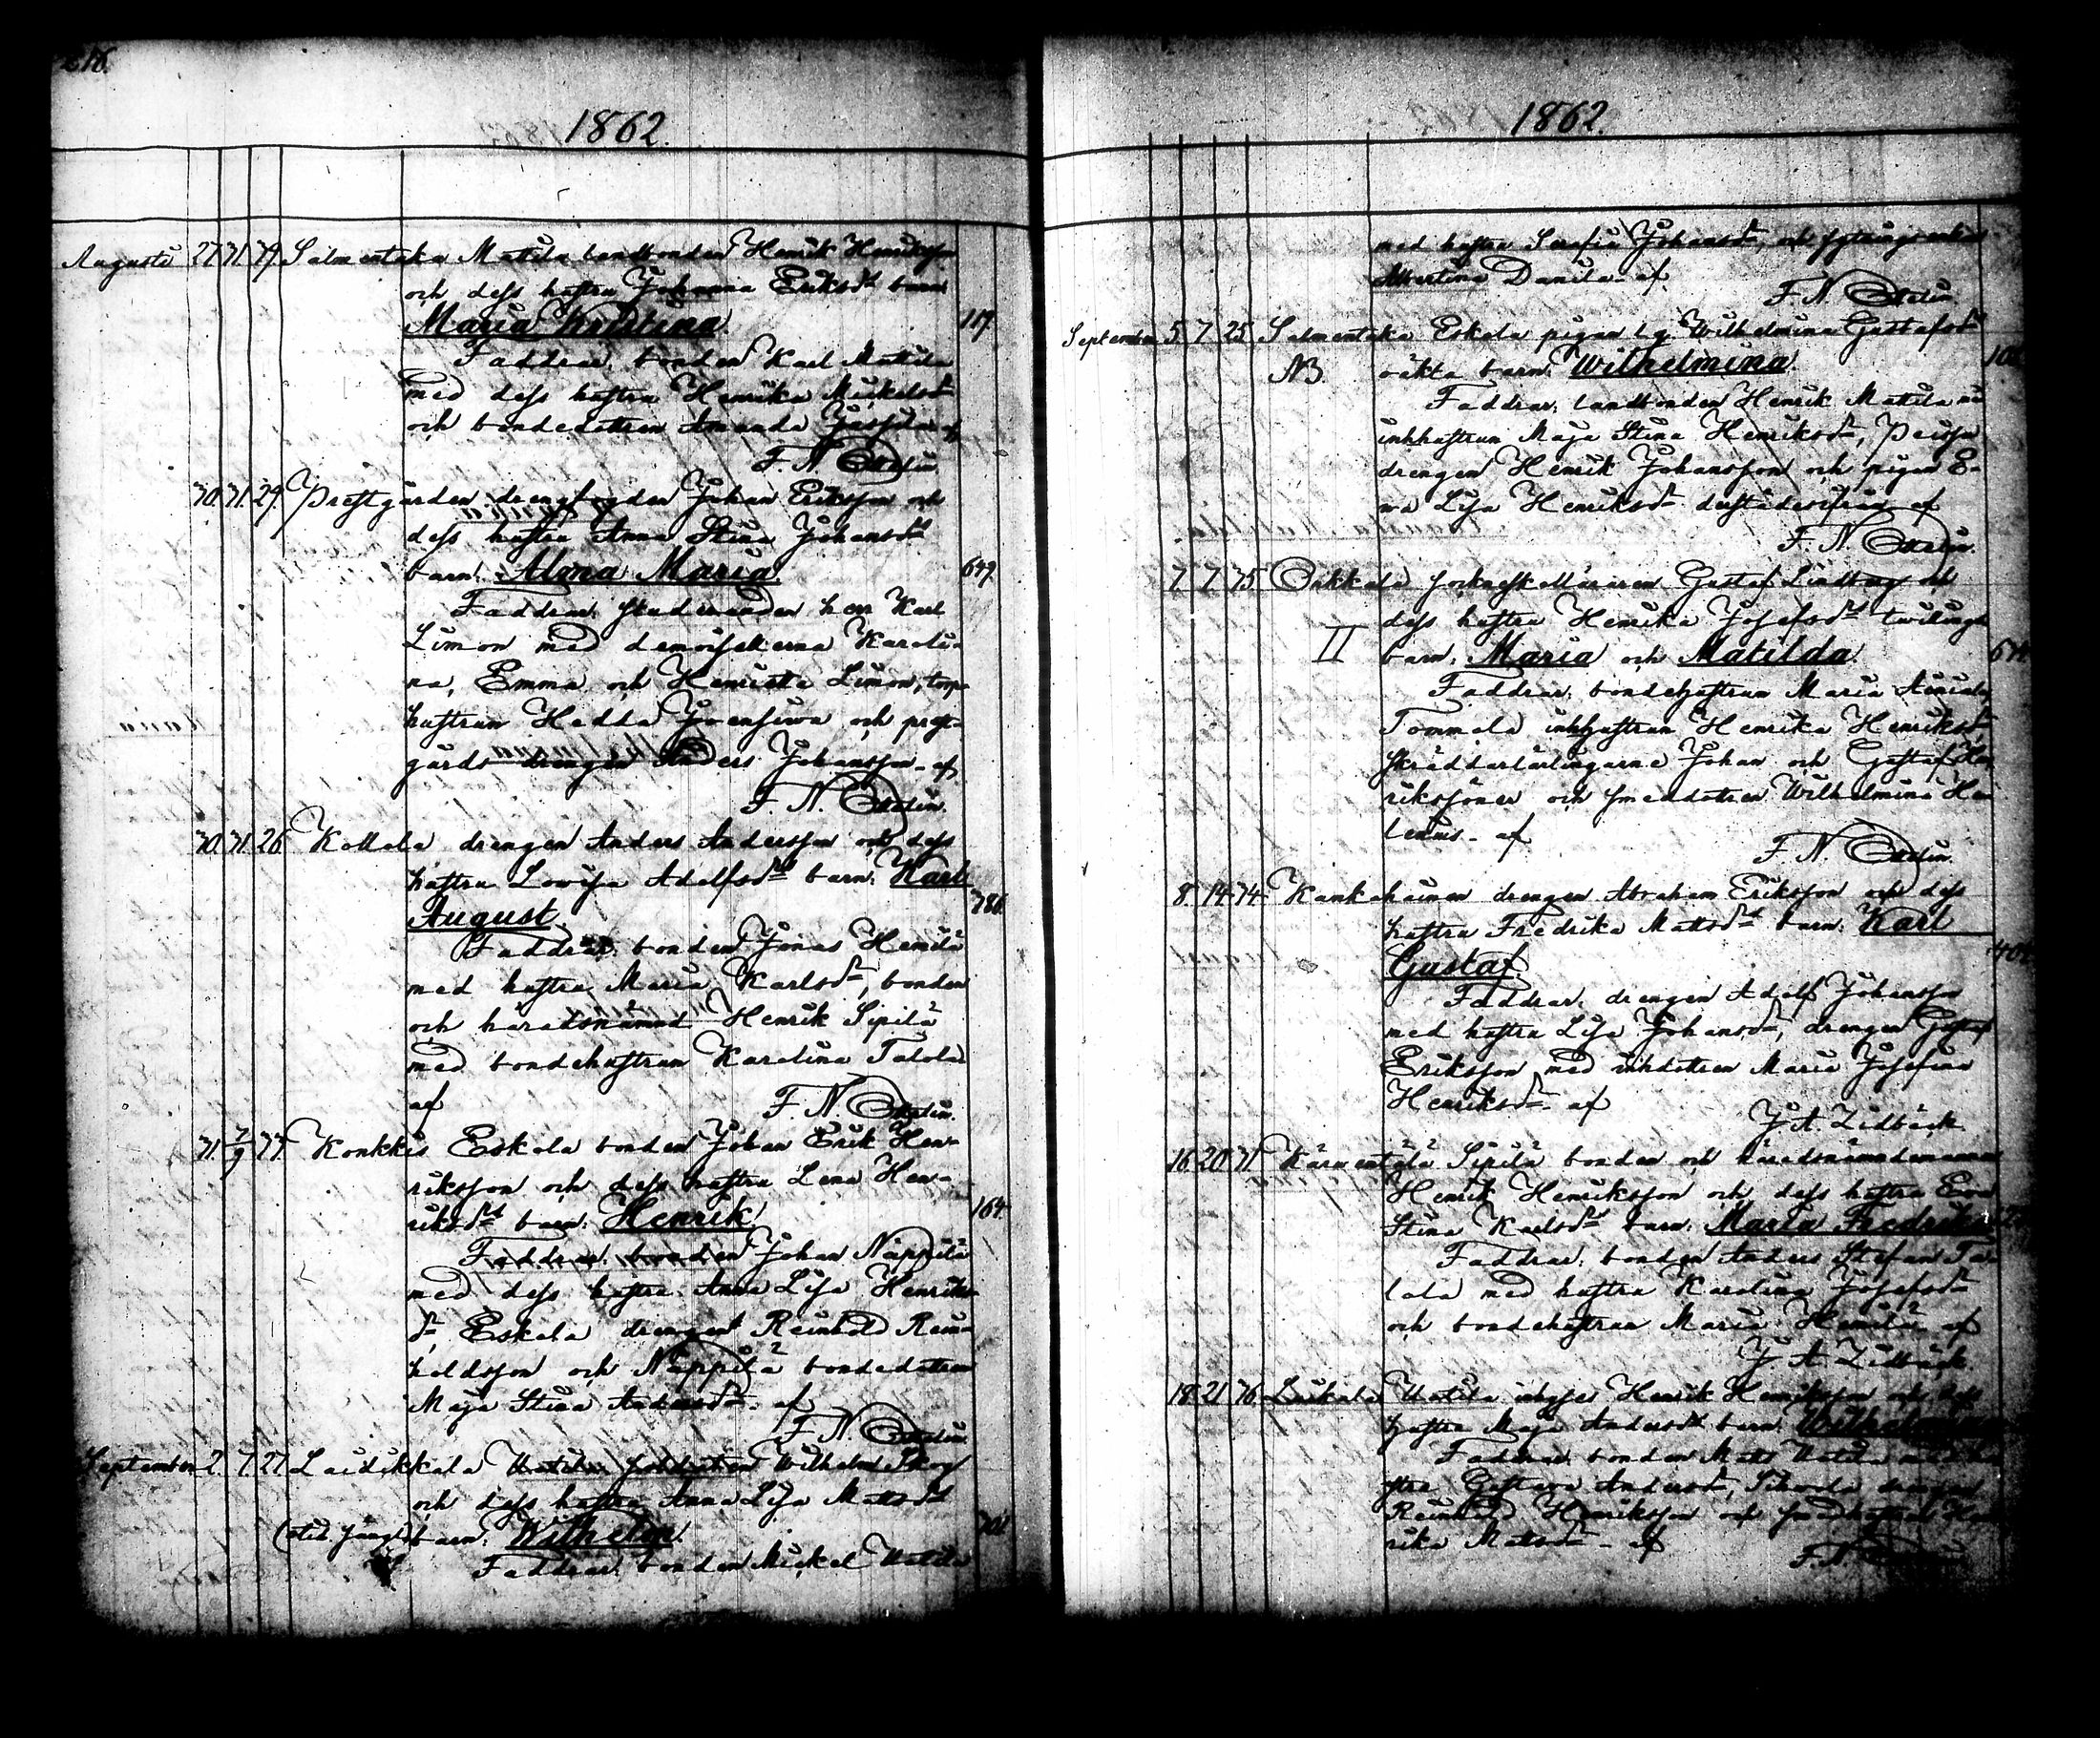 218.
1862.
Augusti 27. 31. 39. Salmentaka Mattila landbonden Henrik Henriksson
och dess hustru Johanna Eriksdrs barn
Maria Kristina. 117.
Faddrar: bonden Karl Mattila
med dess hustru Henrika Mickelsdr
och bondedottren Amanda Jussila af
F. N.
30. 31. 29. Prestgården drengfogden Johan Eriksson och
dess hustru Anna Stina Johansdrs
barn: Alma Maria. 649.
Faddrar: studeranden herr Karl
Limon med demoisellerna Karoli-
na, Emma och Henrietta Limon, torp-
hustrun Hedda och prest-
gårds drengen Anders Johansson af
F. N.
30. 31. 26. Kollola drengen Anders Andersson och dess
hustru Lowisa Adolfsdrs barn: Karl
August. 786.
Faddrar: bonden Jonas Hemilä
med hustru Maria Karlsdr, bonden
och häradsnämnd Henrik Sipilä
med bondehustrun Karolina Talola
af F. N.
31. 7/9 37. Konkkis Eskola bonden Johan Erik Hen-
riksson och dess hustru Lena Hen-
riksdrs barn: Henrik. 164.
Faddrar: bonden Johan Näppilä
med dess hustru Anna Lisa Henriks-
dr, Eskola drengen Reinhold Rein-
holdsson och Näppilä bondedottren
Maja Stina Andersdr af
F. N.
September 2. 7. 27. Laidikkala Uotila Wilhelm Skog
och dess hustru Anna Lisa Mattsdrs
barn: Wilhelm.
Faddrar: bonden Mickel Uotila
1862.
med hustru Serafia Johansdr, och
Albertina Danila af
F. N.
September 5. 7. 25. Salmentaka Eskola pigan lg. Wilhelmina Gustafsdrs
NB. oäkta barn: Wilhelmina.
Faddrar: landbonden Henrik Mattila med
inhhustrun Maja Stina Henriksdr,
drengen Henrik Johansson och pigan E-
va Lisa Henriksdr derstädesifrån af
F. N.
7. 7. 35. Sakkola sockneskolläraren Gustaf Lindberg och
dess hustru Henrika Josefsdrs twillings
II barn: Maria och Matilda.
Faddrar: bondehustrun Maria
Tommola inhhustrun Henrika Henriksdr,
skräddarlärlingarne Johan och Gustaf Hen
rikssöner och smeddottren Wilhelmina He-
lenius af
F. N.
8. 14. 34. Kankahainen drengen Abraham Eriksson och dess
hustru Fredrika Mattsdrs barn: Karl
Gustaf.
Faddrar: drengen Adolf Johansson
med hustru Lisa Johansdr, drengen Gustaf
Eriksson med inhdottren Maria Josefina
Henriksdr af
J. A. Lidbäck
16. 20. 31. Kärmentälä Sipilä bonden och häradsnämdemannen
Henrik Henriksson och dess hustru Eva
Stina Karlsdrs barn: Maria Fredrika
Faddrar: bonden Anders Stefan Ta-
lola med hustru Karolina Josefsdr
och bondehustrun Maria Hemilä af
J. A. Lidbäck
18. 21. 36. Uotila inhyses Henrik Henriksson och dess
hustru Maja Andersdrs barn: Wilhelmina
Faddrar: bonden Matts Uotila med hu
stru Gustava Andersdr, drengen
Reinhold Henriksson och smedhustrun Hen
rika Mattsdr af
F. N.